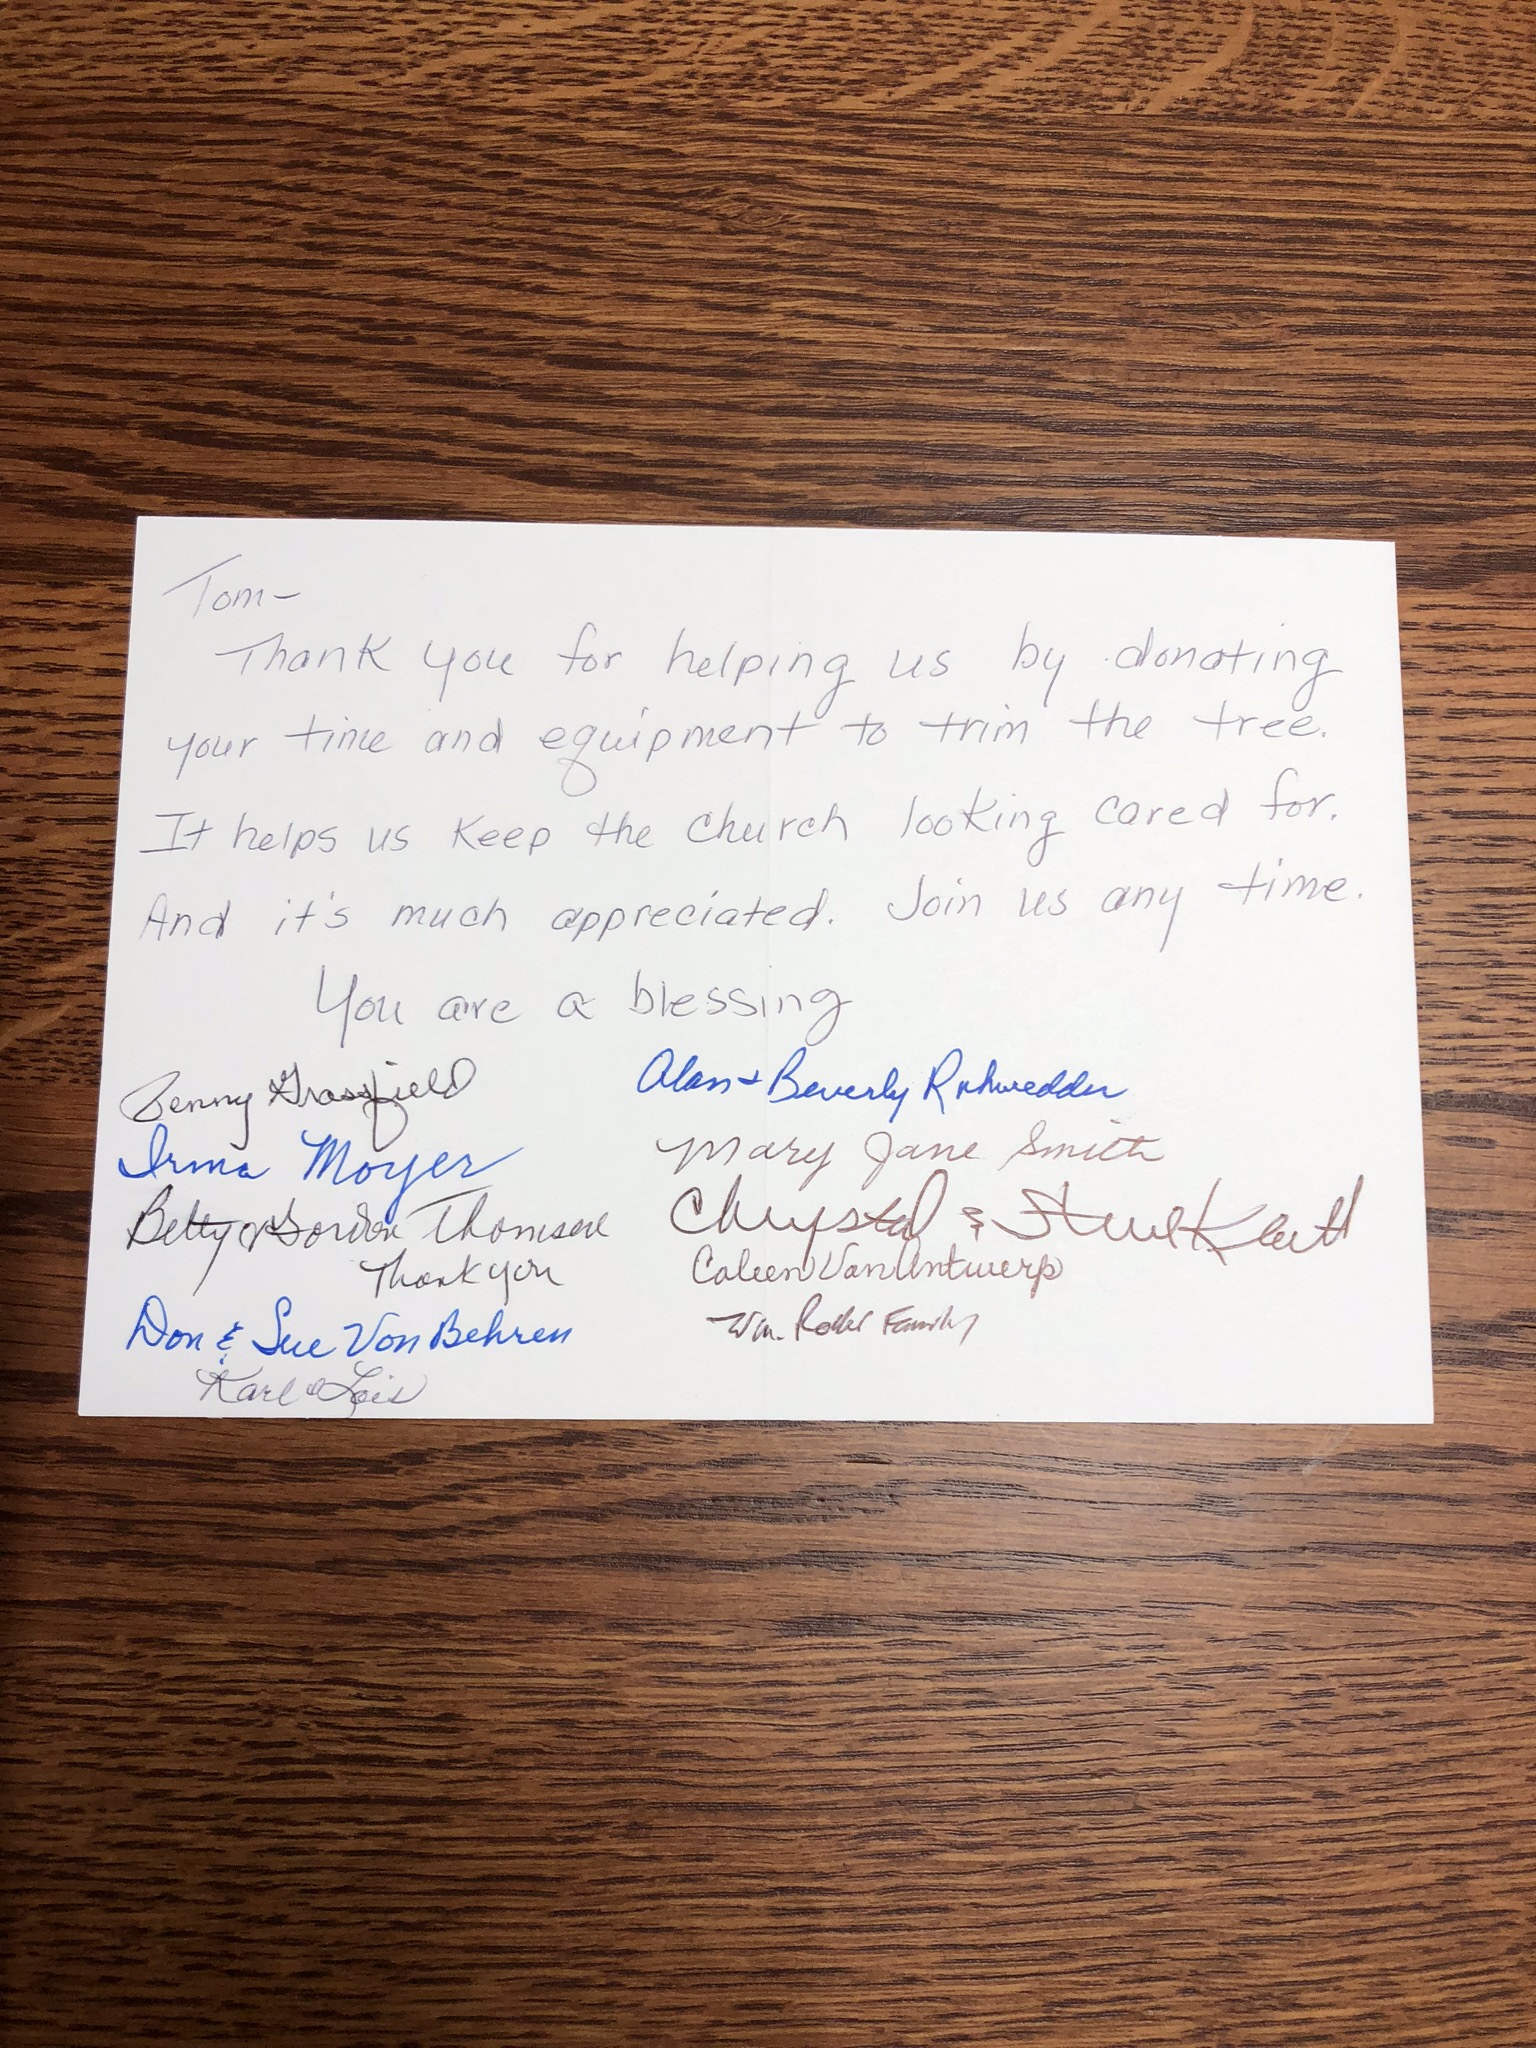 Tom-
Thank you for helping us by donating
your time and equipment to trim the tree.
It helps us keep the church looking cared for.
And it's much appreciated. Join us any time.
You are a blessing
Grassfield
Irma Moyer
Betty & Gordon Thomsen
Thank you
Don & Sue Von Behren
Karl & Lois
Alan + Beverly
Mary Jane Smith
Chrystal &
Coleen Van Antwerp
Wm. Family